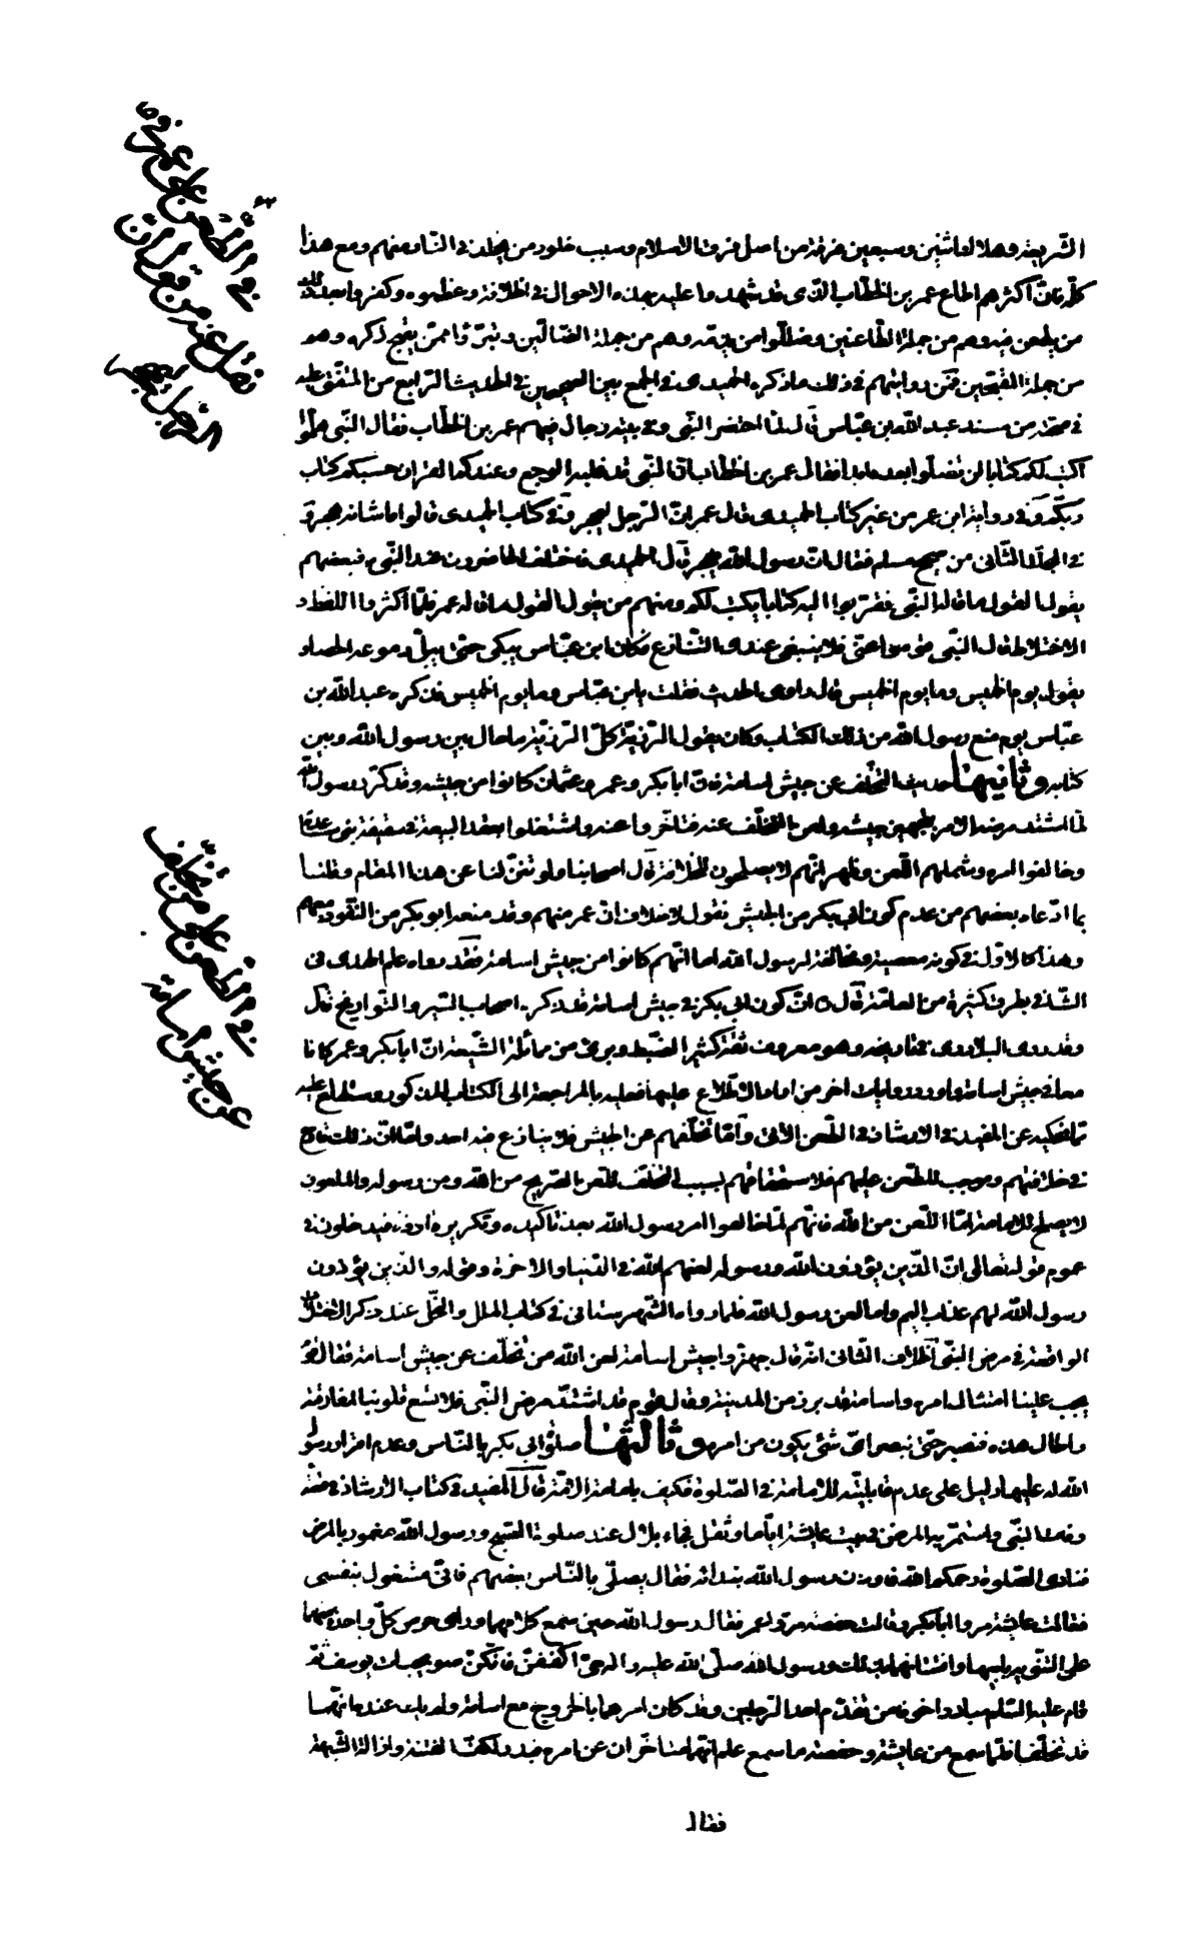 الشريعة وهلاك اثنين وسبعين فرقة من اصل فرق الاسلام وسبب خلود من يخلد في النار منهم ومع هذا
كله فان اكثرهم اطاع عمر بن الخطاب الذي قد شهدوا عليه بهذه الاحوال في الخلافة وعظموه وكفروا
من يطعن فيه وهم من جملة الطاعنين وضللوا من يذمه وهم من جملة الضالين وتبرؤا ممن يقبح ذكره وهو
من جملة المقبحين فمن روايتهم في ذلك ما ذكره الحميدي في الجمع بين الصحيحين في الحديث الرابع من المتفق عليه
في صحته من مسند عبد الله بن عباس قال لما احتضر النبي وفي بيته رجال فيهم عمر بن الخطاب فقال النبي هلموا
اكتب لكم كتابا لن تضلوا بعده ابدا فقال عمر بن الخطاب ان النبي قد غلبه الوجع وعندكم القران حسبكم كتاب
ربكم وفي رواية ابن عمر من غير كتاب الحميدي قال عمر ان الرجل ليهجر وفي كتاب الحميدي قالوا ما شانه هجر و
في المجلد الثاني من صحيح مسلم فقال ان رسول الله يهجر قال الحميدي فاختلف الحاضرون عند النبي فبعضهم
يقول القول ما قاله النبي فقربوا اليه كتابا يكتب لكم ومنهم من يقول القول ما قاله عمر فلما اكثروا اللغط و
الاختلاط قال النبي قوموا عني فلا ينبغي عندي التنازع فكان ابن عباس يبكي حتى يبل دموعه الحصا و
يقول يوم الخميس وما يوم الخميس قال راوي الحديث فقلت يا بن عباس وما يوم الخميس فذكره عبد الله بن
عباس يوم منع رسول الله من ذلك الكتاب وكان يقول الرزية كل الرزية ما حال بين رسول الله وبين
كتابه وثانيها حديث التخلف عن جيش اسامة فان ابا بكر وعمر وعثمان كانوا من جيشه وقد كرر رسول الله
لما اشتد مرضه الامر بتجهيز جيشه ولعن المتخلف عنه فتاخروا عنه واشتغلوا بعقد البيعة في سقيفة بني ساعدة
وخالفوا امره وشملهم اللعن وظهر انهم لا يصلحون للخلافة قال اصحابنا ولو تنزلنا عن هذا المقام وقلنا
بما ادعاه بعضهم من عدم كون ابي بكر من الجيش نقول لا خلاف ان عمر منهم وقد منعه ابو بكر من النفوذ معهم
وهذا كالاول في كونه معصية ومخالفة لرسول الله اما انهم كانوا من جيش اسامة فقد رواه علم الهدى في
الشافي بطرق كثيرة من العامة قال ان كون ابي بكر في جيش اسامة قد ذكره اصحاب السير والتواريخ قال
وقد روى البلاذري في تاريخه وهو معروف ثقة كثير الضبط وبرئ من ممائلة الشيعة ان ابا بكر وعمر كانا
معا في جيش اسامة واورد روايات اخر من اراد الاطلاع عليها فعليه بالمراجعة الى الكتاب المذكور وستطلع عليه
مما نحكيه عن المفيد في الارشاد في الطعن الآتي واما تخلفهم عن الجيش فلا ينازع فيه احد واما ان ذلك قادح
في خلافتهم وموجب للطعن عليهم فلاستحقاقهم بسبب التخلف للعن الصريح من الله ومن رسوله والملعون
لا يصلح للامامة اما اللعن من الله فانهم لما خالفوا امر رسول الله بعد تاكيده وتكريره اوذي فيدخلون في
عموم قوله تعالى ان الذين يؤذون الله ورسوله لعنهم الله في الدنيا والاخرة وقوله والذين يؤذون
رسول الله لهم عذاب اليم واما لعن رسول الله فلما رواه الشهرستاني في كتاب الملل والنحل عند ذكر الاختلافات
الواقعة في مرض النبي الخلاف الثاني انه قال جهزوا جيش اسامة لعن الله من تخلف عن جيش اسامة فقال قوم
يجب علينا امتثال امره واسامة قد برز من المدينة وقال قوم قد اشتد مرض النبي فلا تسع قلوبنا المفارقة
والحال هذه فنصبر حتى نبصر اي شئ يكون من امره وثالثها صلوة ابي بكر بالناس وعدم اقرار رسول
الله له عليها دليل على عدم قابليته للامامة في الصلوة فكيف بامامة الامة قال المفيد في كتاب الارشاد في قصة
وفات النبي واستمر به المرض في بيت عايشة اياما وثقل فجاء بلال عند صلوة الصبح ورسول الله مغمور بالمرض
فنادى الصلوة رحمكم الله فاوذن رسول الله بندائه فقال يصلي بالناس بعضهم فاني مشغول بنفسي
فقالت عايشة مروا ابا بكر وقالت حفصة مروا عمر فقال رسول الله حين سمع كلامهما وراى حرص كل واحدة منهما
على التنويه بابيها وافتتانهما بذلك ورسول الله صلى الله عليه واله حي اكففن فانكن صويحبات يوسف ثم
قام عليه السلام مبادرا خوفا من تقدم احد الرجلين وقد كان امرهما بالخروج مع اسامة ولم يك عنده انهما
قد تخلفا فلما سمع من عايشة وحفصة ما سمع علم انهما متاخران عن امره فبدر لكف الفتنة وازالة الشبهة
فقال
في الطعن على عمر في
نقل عنه من قوله ان
الرجل ليهجر
في الطعن على من تخلف
عن جيش اسامة